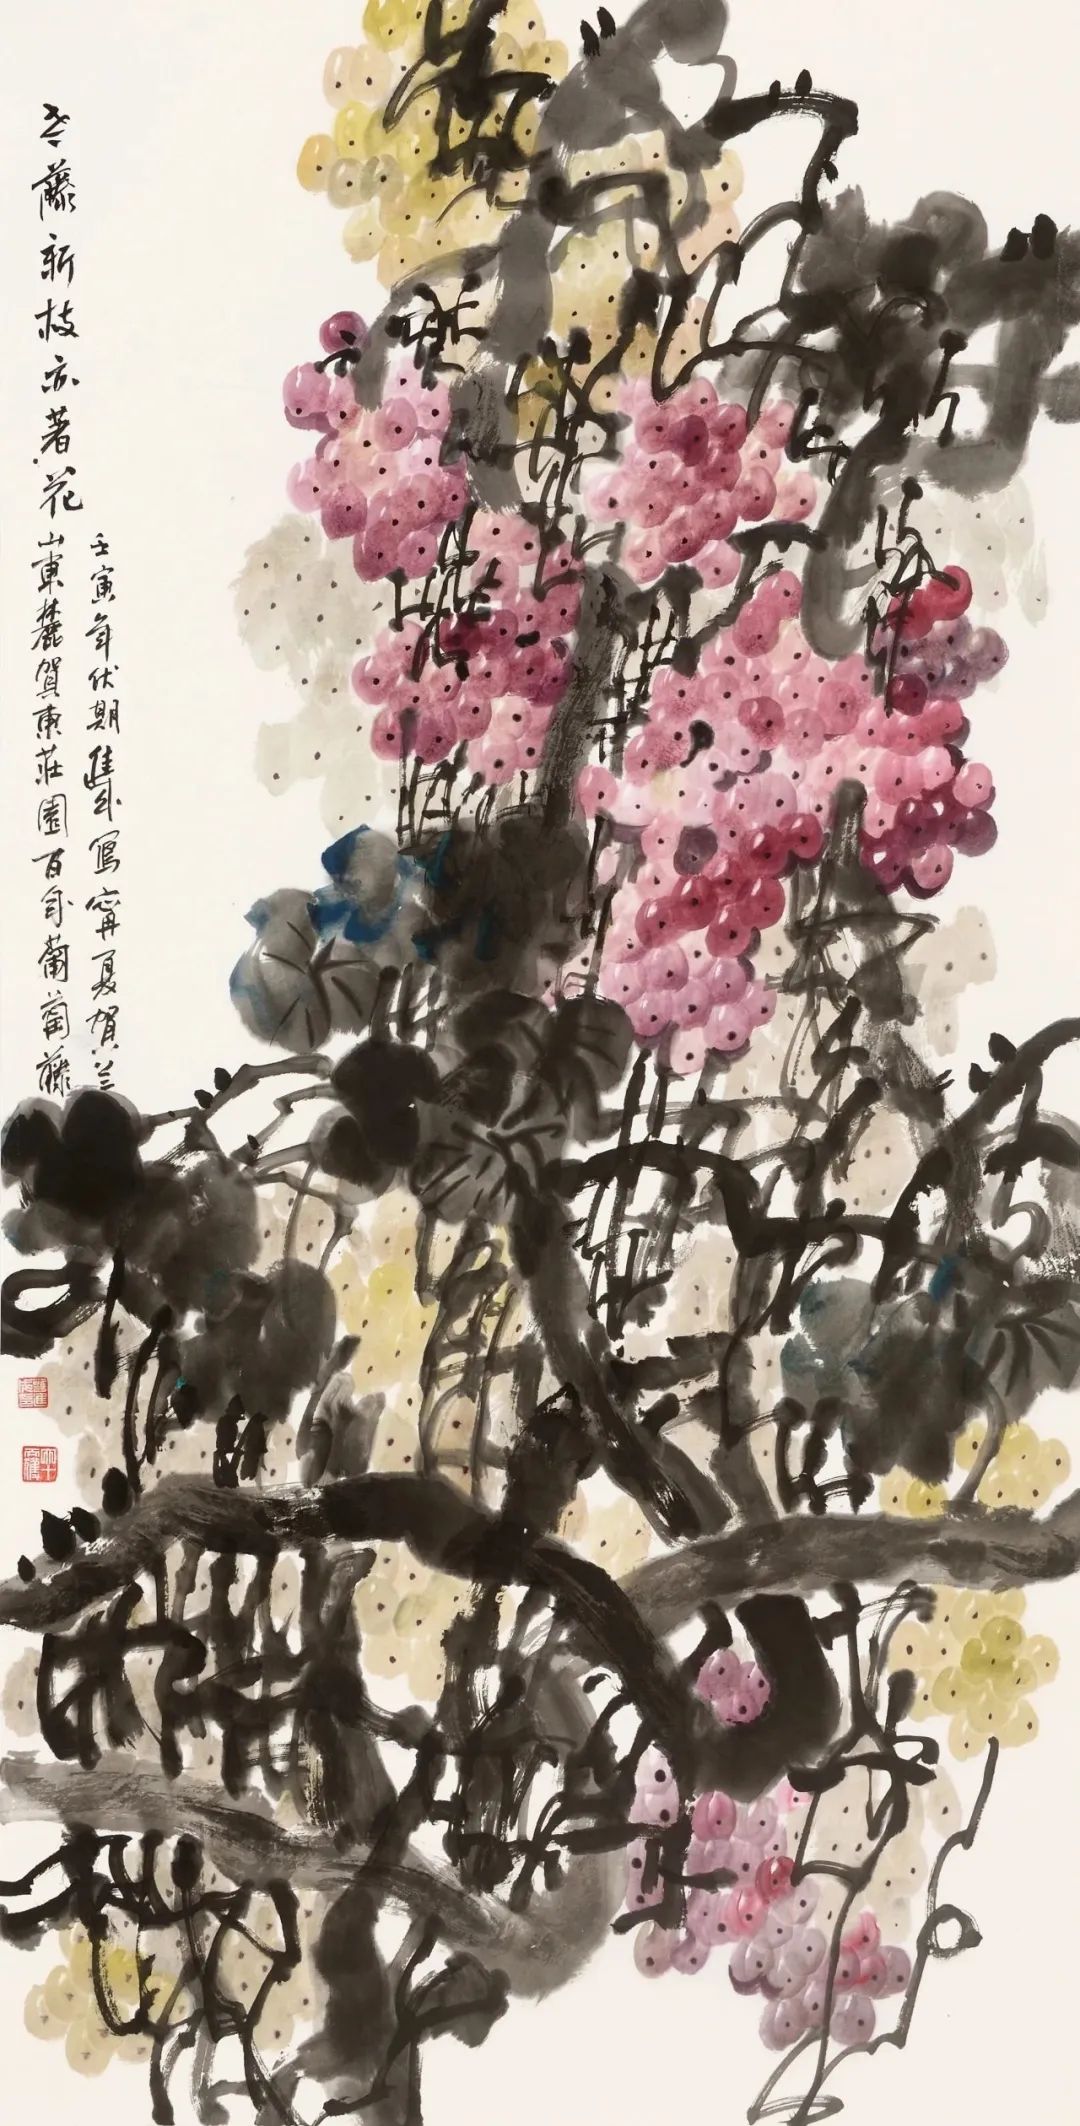 老藤新枝亦著花
壬寅年伏期進年寫寧夏賀兰
山東麓賀東莊園百年葡萄藤